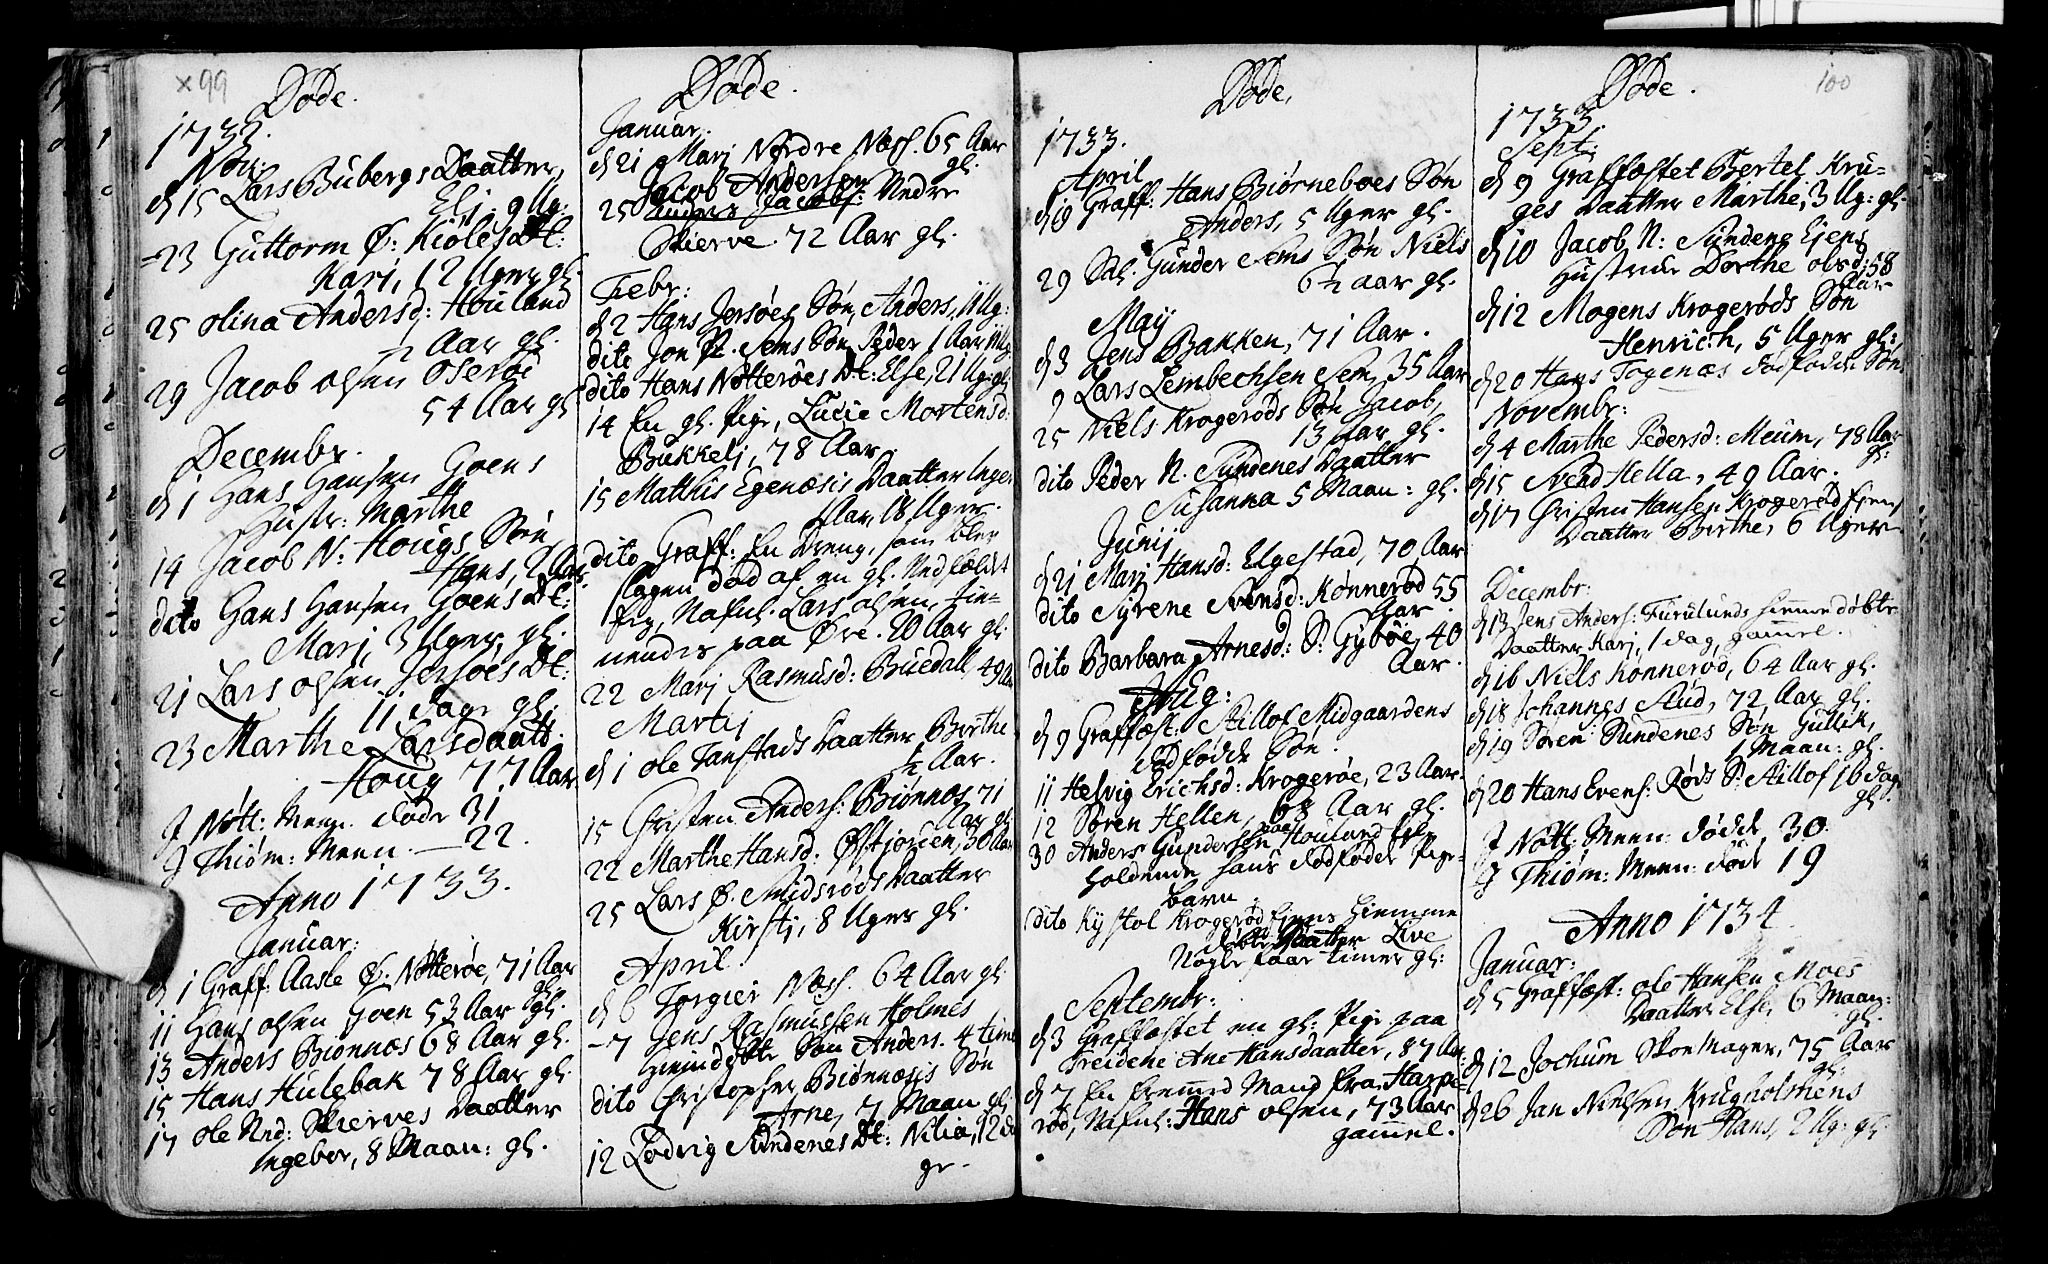 x 99
Døde.
1732.
Nov:
d 15 Lars Bubergs Daatter,
Eli: 9 Ug:
-23 Guttorm Ø: Kiøles Dt:
Kari, 12 Uger gl.
25 Olina Andersd: Houland
½ Aar gl.
29 Jacob Olsen Oserøe
54 Aar gl
Decembr.
d 1 Hans Hansen Goens
Hustr: Marthe
14 Jacob N: Hougs Søn,
Hans, 2 Aar
dito Hans Hansen Goens Dt:
Mari, 3 Uger, gl.
21 Lars Olsen Jersøes Dt:
11 Dage gl.
23 Marthe Larsdaatt.
Houg 77 Aar
J Nøtt: Meen. døde 31
J Thiøm: Meen. — 22.
Anno 1733.
Januar:
d 1 Graff: Aasle Ø: Nøtterøe, 71 Aar
gl.
11 Hans Olsen Goen 53 Aar gl.
13 Anders Biønnæs 68 Aar gl.
15 Hans Hulebak 78 Aar gl.
17 Ole Ned: Skierves Daatter
Ingebor, 8 Maan: gl.
Døde.
Januar.
d 21 Mari Nordre Næss. 65 Aar
gl.
Jacob Andersen
25 Anders Jacobs: Nedre
Skierve. 72 Aar gl.
Febr:
d 2 Hans Jersøes Søn, Anders, 11 Ug:
dito Jon Sems Søn Peder 1 Aar 11 Ug.
dito Hans Nøtterøes Dt: Else, 21 Ug: gl.
14 En gl. Pige, Lucie Mortensd:
Bukkeli, 78 Aar.
15 Matthis Egenæsis Daatter Inger
1 Aar 18 Uger.
dito Graff: En Dreng, som blev
slagen død af en gl. Nedfældet
Nafnl. Lars Olsen, tie-
nendes paa Øre. 20 Aar gl.
22 Mari Rasmusd: Buedall, 49 Aar
Martij
d 1 Ole Tanstads Daatter Birthe
½ Aar.
15 Christen Anders: Biønnes 71
Aar gl.
22 Marthe Hansd: Østjorden, 30 Aar
25 Lars Ø. Smidsrøds Daatter
Kirsti, 8 Uger gl.
April.
d 6 Torgier Næss. 64 Aar gl.
-7 Jens Rasmussen Holmes
hiemdøbte Søn Anders. 4 time
dito Christopher Biønnæsis Søn
Arne, 7 Maan gl.
12 Lodvig Sundenes Dt: Nilia, 12 da
ge.
Døde.
1733.
April
d 19 Graff: Hans Biørneboes Søn
Anders, 5 Uger gl.
29 Sal. Gunder Sems Søn Niels
6½ aar gl.
May
d 3 Jens Bakken, 71 Aar.
9 Lars Lembechsen Sem, 35 Aar
25 Niels Krogerøds Søn Jacob,
13 Aar gl.
dito Peder N. Sundenes Daatter
Susanna 5 Maan: gl.
Junij
d 21 Mari Hansd: Elgestad, 70 Aar
dito Syrene Svensd: Kønnerød 55
Aar.
dito Barbara Arnesd: S: Gybøe, 40
Aar.
Aug:
d 9 Graffæst: Stillof Midgaardens
dødfødde Søn.
11 Helvig Erichsd: Krogerøe, 23 Aar.
12 Søren Hellen, 68 Aar gl.
30 Anders Gundersen paa Houland
holdende hans dødfødde Pige-
barn.
dito Kystol Krogerød Ejens hiemme
døbte Daatter Live
Nogle faae timer gl:
Septembr:
d 3 Graffæstet en gl: Pige paa
Treidene Ane Hansdaatter, 87 Aar:
d 7 En fremmed Mand fra Harpe-
rød, Nafnl: Hans Olsen, 73 Aar
gammel.
100
Døde.
1733.
Sept:
d 9 Graffæstet Bertel Kru-
ges Daatter Marthe, 3 Ug: gl.
d 10 Jacob N: Sundene Ejens
Hustrue Dorthe Olsd: 58
Aar
d 12 Mogens Krogerøds Søn
Henrich, 5 Uger gl:
d 20 Hans Togenæs dødfødde Søn
Novembr:
d 4 Marthe Pedersd: Meum, 78 Aar
gl:
d 15 Svend Hella, 49 Aar.
d 17 Christen Hansen Krogerød Ejens
Daatter Birthe, 6 Uger
Decembr:
d 13 Jens Anders: Furulunds hiemmedøbte
Daatter Kari, 1 dag, gammel.
d 16 Niels Konnerød, 64 Aar gl.
d 18 Johannes Stud, 72 Aar gl.
d 19 Søren Sundenes Søn Gullik,
1 Maan: gl.
d 20 Hans Evens: Røds S: Stillof 16 dage
gl.
J Nøtt: Meen: Fødde, 30.
J Thiøm: Meen: Født 19
Anno 1734.
Januar:
d 5 Graffæst: Ole Hansen Moes
Daatter Else, 6 Maan:
gl.
d 12 Jochum Skomager, 75 Aar
gl:
d 26 Jan Nielsen Krugholmens
Søn Hans, 2 Ug: gl.